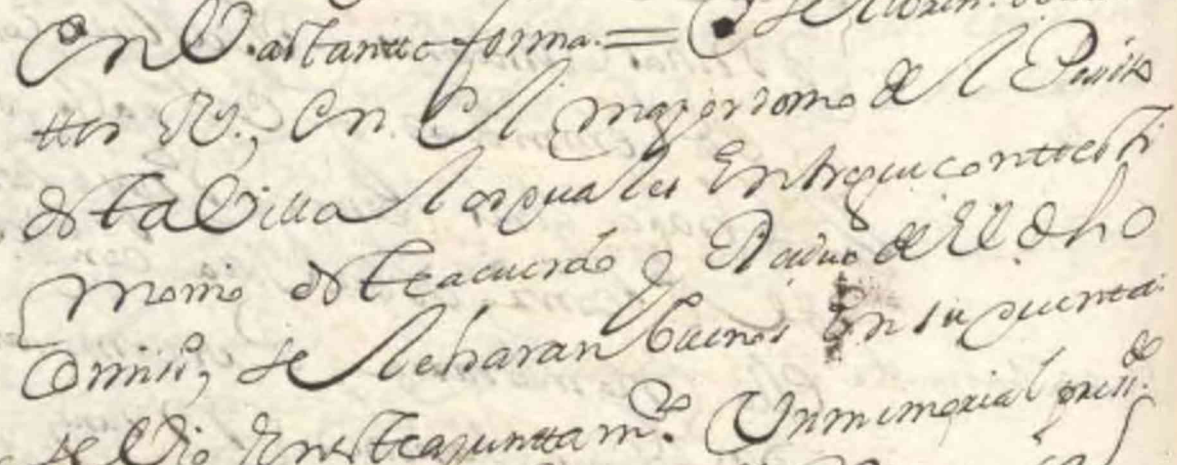 en Bastantte forma = Y se
ttos Rs., en el mayordomo del Posito
desta Villa los quales Entregue con ttesti
monio deste acuerdo y Reciuo de El dho
Comiso, se le haran buenos En su quenta
se Vio En este ayunttamto. Un memorial press.do